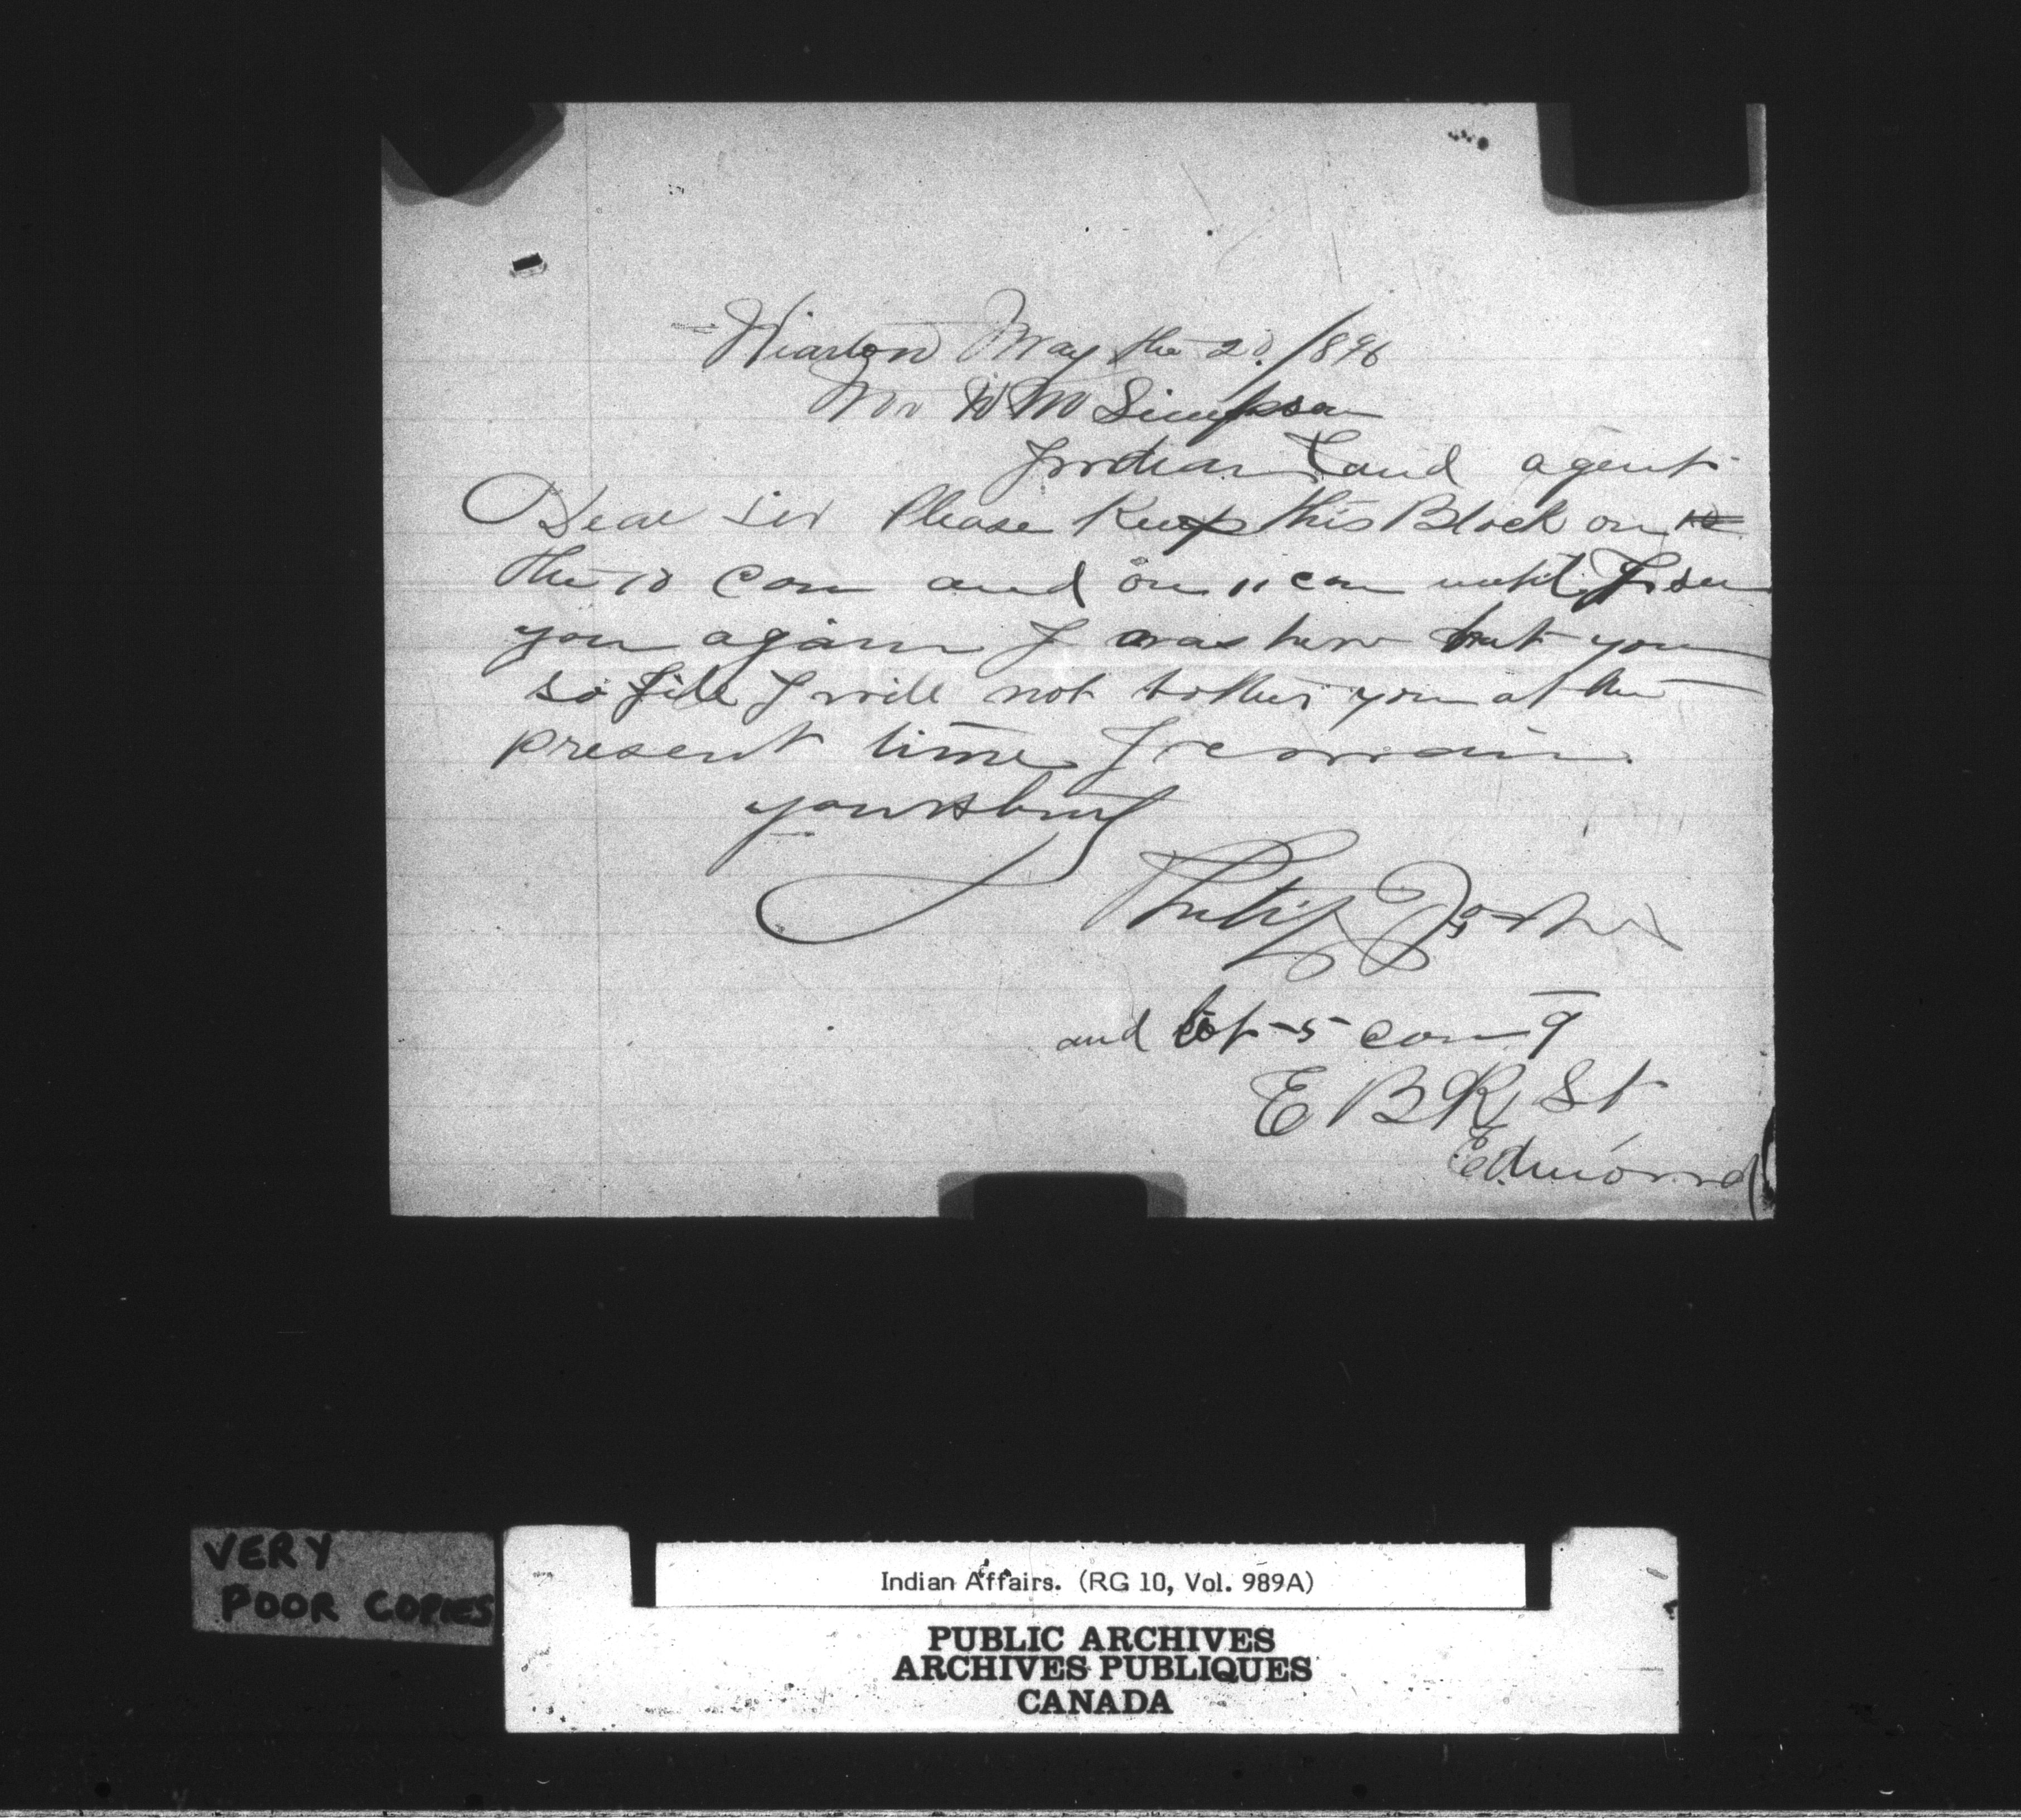 Wiarton May the 20/1896
Mr W M Simpson
Indian Land agent
Dear Sir Please Keep this Block on
the 10 Con and on 11 con until I see
you again I was here but you
so I will not bother you at the
present time I remain
yours truly
Philip
and Lot - 5 con 9
E B R St
Edmond
VERY
POOR COPIES
Indian Affairs. (RG 10, Vol. 989A)
PUBLIC ARCHIVES
ARCHIVES PUBLIQUES
CANADA